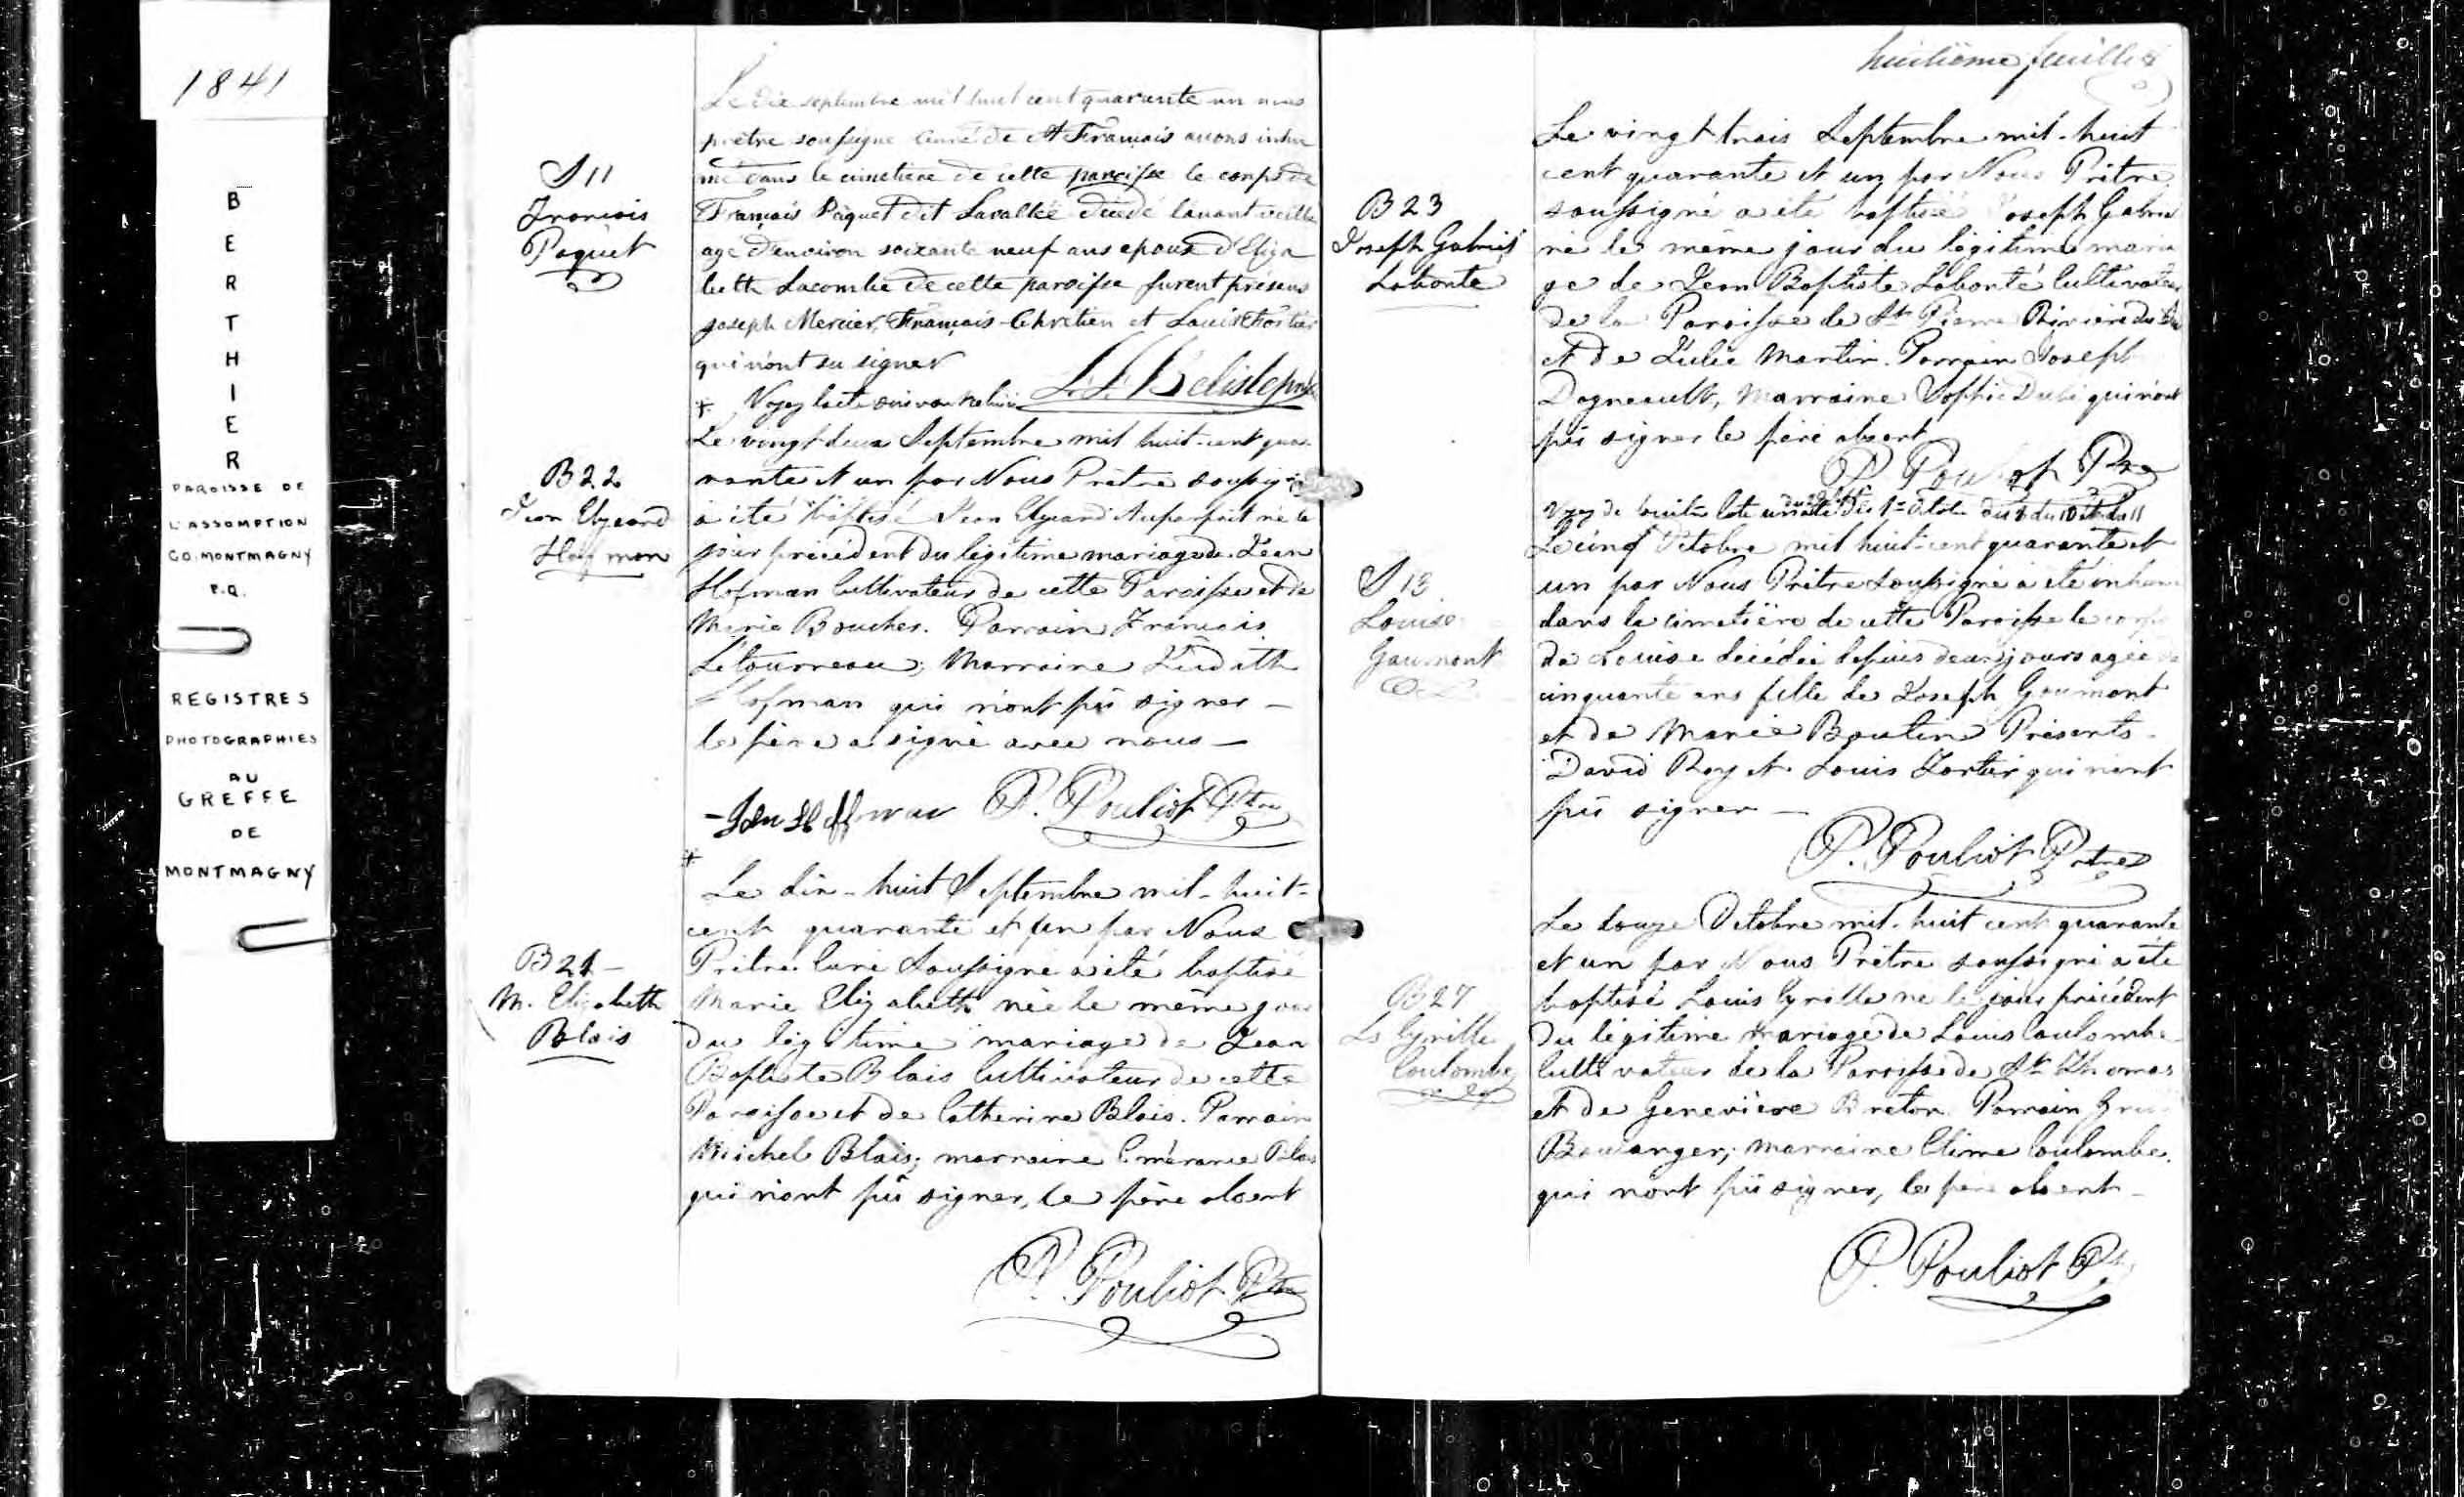 1841
BERTHIER
PAROISSE DE
L'ASSOMPTION
CO. MONTMAGNY
P.Q.
REGISTRES
PHOTOGRAPHIES
AU
GREFFE
DE
MONTMAGNY
S 11
François
Paquet
Le dix septembre mil huit cent quarante un nous
prêtre soussigné Curé de St François avons inhu
mé dans le cimetiere de cette paroisse le corps de
François Pâquet dit Lavallée décédé l'avant veille
agé d'environ soixante neuf ans epoux d'Eliza
beth Lacombe de cette paroisse furent présens
Joseph Mercier, François Chretien et Louis Fortier
qui n'ont su signer
L. L. Belisle ptre
* Voyez l'acte suivant
B 22
Jean Elzeard
Hofman
Le vingt deux Septembre mil huit-cent qua-
rante et un par Nous Prêtre soussigné
a été baptisé Jean Elzeard né le
jour précédent du légitime mariage de Jean
Hofman Cultivateur de cette Paroisse et de
Marie Boucher. Parrain François
Letourneau; Marraine Judith
Hofman qui n'ont pû signer –
le père a signé avec nous –
P. Pouliot Ptre
*
B 21 –
M. Elizabeth
Blais
Le dix-huit Septembre mil-huit-
cent quarante et un par Nous
Prêtre Curé Soussigné a été baptisé
Marie Elizabeth née le même jour
du légitime mariage de Jean
Baptiste Blais Cultivateur de cette
Paroisse et de Catherine Blais. Parrain
Michel Blais; marraine Emérance Blais
qui n'ont pû signer, le père absent
P. Pouliot Ptre
huitième feuillet
B 23
Joseph Gabriel
Labonté
Le vingt trois Septembre mil-huit
cent quarante et un par Nous Prêtre
soussigné a été baptisé Joseph Gabriel
né le même jour du légitime maria
ge de Jean Baptiste Labonté Cultivateur
de la Paroisse de St Pierre Rivière du Sud
et de Julie Martin. Parrain Joseph
Dagneault, Marraine Sophie Dubé qui n'ont
pû signer le père absent
P. Pouliot Ptre
S 13
Louise
Gaumont
Le cinq Octobre mil huit-cent quarante et
un par Nous Prêtre Soussigné a été inhumé
dans le cimetière de cette Paroisse le corps
de Louise décédée depuis deux jours agée de
cinquante ans fille de Joseph Gaumont
et de Marie Boutin Présents
David Roy et Louis Fortier qui n'ont
pû signer –
P. Pouliot Ptre
B 27
Ls Cyrille
Coulombe
Le douze Octobre mil-huit cent quarante
et un par Nous Prêtre soussigné a été
baptisé Louis Cyrille né le jour précédent
du légitime mariage de Louis Coulombe
Cultivateur de la Paroisse de St Thomas
et de Geneviève Breton. Parrain
Boulanger; marraine Coulombe.
qui n'ont pû signer, le père absent –
P. Pouliot Ptre